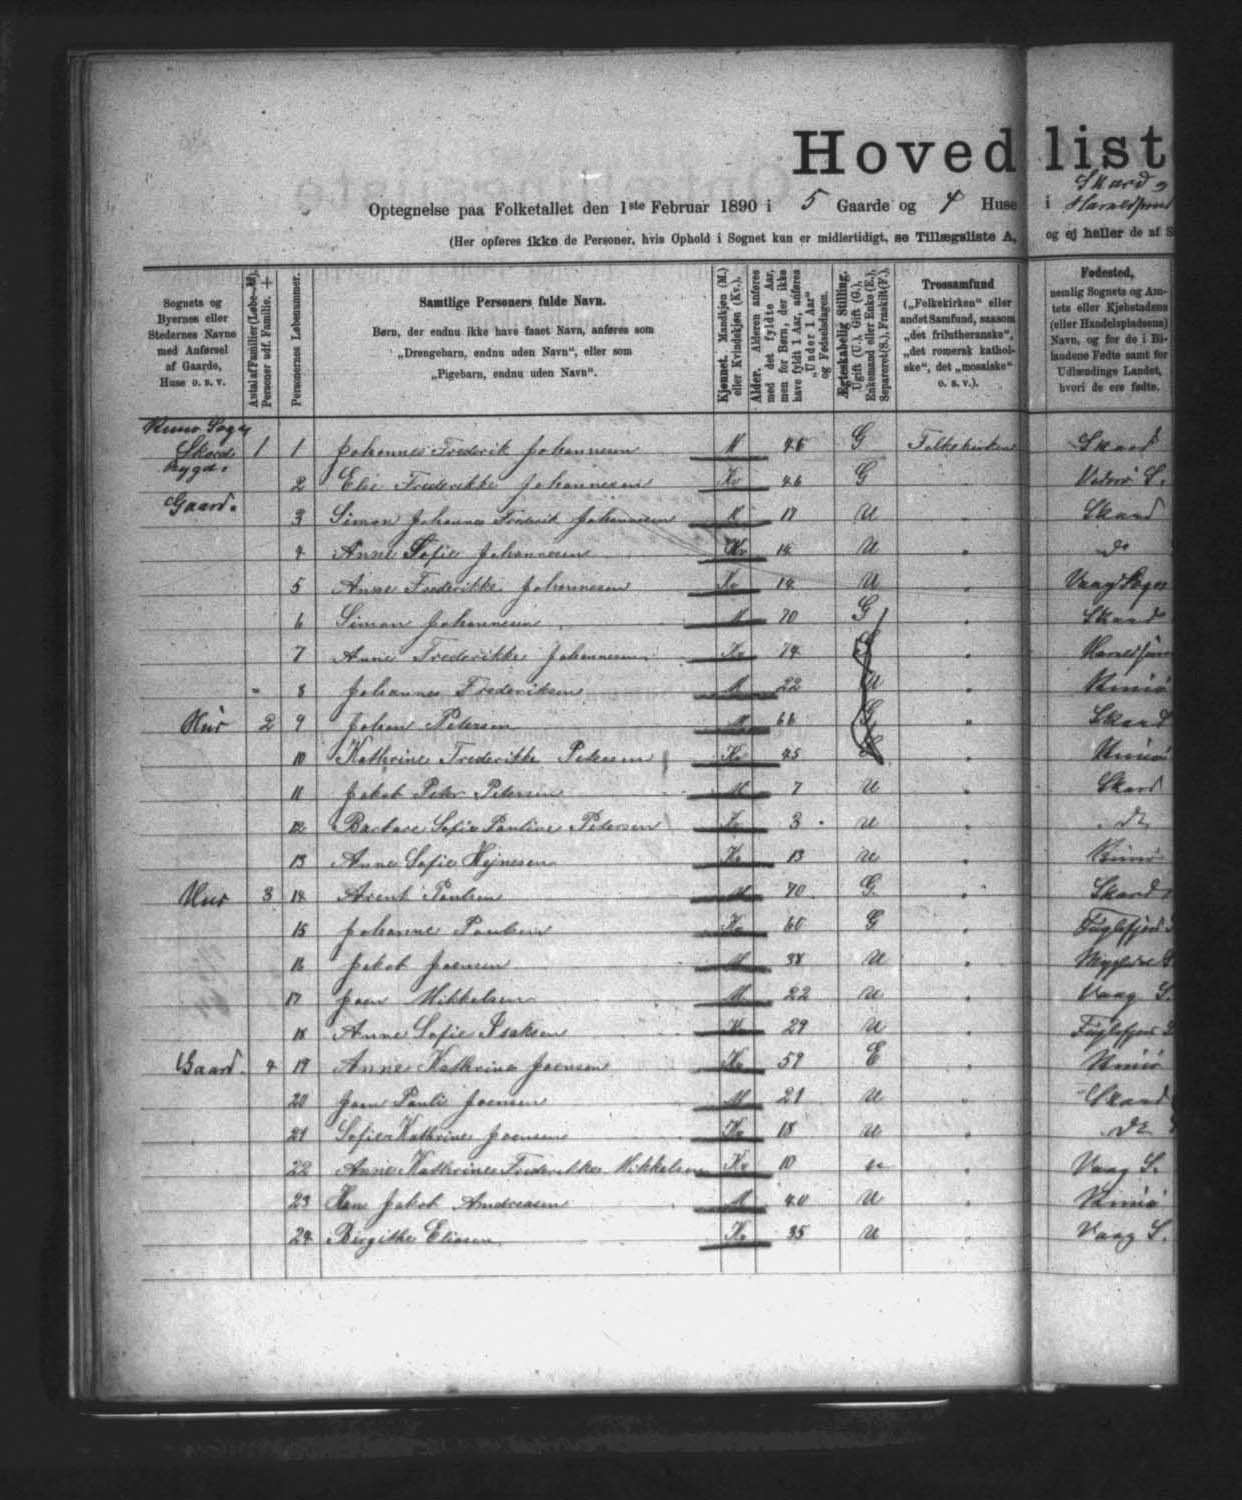 Hovedlist
Optegnelse paa Folketallet den 1ste Februar 1890 i 5 Gaarde og 4 Huse i Skard
(Her opføres ikke de Personer, hvis Ophold i Sognet kun er midlertidigt, se Tillægsliste A, og ej heller de af S
Sognets og Byernes eller Stedernes Navne med Anførsel af Gaarde, Huse o. s. v.
Antal af Familier (Løbe-№). Personer udf. Familie. +
Personernes Løbenummer.
Samtlige Personers fulde Navn.
Børn, der endnu ikke have faaet Navn, anføres som
„Drengebarn, endnu uden Navn“, eller som
„Pigebarn, endnu uden Navn“.
Kjønnet. Mandkjøn (M.) eller Kvindekjøn (Kv.).
Alder. Alderen anføres med det fyldte Aar, men for Børn, der ikke have fyldt 1 Aar, anføres „Under 1 Aar“ og Fødselsdagen.
Ægteskabelig Stilling. Ugift (U.), Gift (G.), Enkemand eller Enke (E.), Separeret (S.), Fraskilt (F.).
Trossamfund („Folkekirken“ eller andet Samfund, saasom „det frilutheranske“, „det romersk katholske“, det „mosaiske“ o. s. v.).
Fødested, nemlig Sognets og Amtets eller Kjøbstadens (eller Handelspladsens) Navn, og for de i Bilandene Fødte samt for Udlændinge Landet, hvori de ere fødte.
Skord Bygd. 1 1 Johannes Frederik Johannesen M 46 G Folkekirken Skaard
2 Else Frederikke Johannesen Kv 46 G S.
Gaard. 3 Simon Johannes Frederik Johannesen M 17 U Skaard
4 Anne Sofie Johannesen Kv 14 U do
5 Anne Frederikke Johannesen Kv 14 U Vaag Sogn
6 Simon Johannesen M 70 G Skaard
7 Anne Frederikke Johannesen Kv 74
8 Johannes Frederiksen M 22 U Kunø
Hus 2 9 Johan Petersen M 66 G Skaard
10 Kathrine Frederikke Petersen Kv 45 Kunø
11 Jakob Peter Petersen M 7 U Skard
12 Barbare Sofie Pauline Petersen Kv 3 U do
13 Anne Sofie Hejnesen Kv 13 U Kunø
Hus 3 14 Arent Poulsen M 70 G Skaard
15 Johanne Poulsen Kv 60 G Fuglefjord
16 Jakob Joensen M 38 U S
17 Joen Mikkelsen M 22 U Vaag S.
18 Anne Sofie Isaksen Kv 29 U Fuglefjord
Gaard. 4 19 Anne Kathrine Joensen Kv 59 E Kunø
20 Joen Pauli Joensen M 21 U Skaard
21 Sofie Kathrine Joensen Kv 18 U do
22 Anne Kathrine Frederikke Mikkelsen Kv 10 U Vaag S.
23 Hans Jakob Andreasen M 40 U Kunø
24 Birgithe Eliasen Kv 35 U Vaag S.